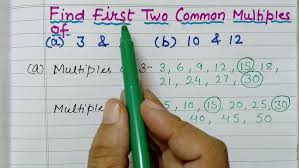 Find First Two Common Multiples
of
(a) 3 & (b) 10 & 12
(a) Multiples 3- 3, 6, 9, 12, 15, 18,
21, 24, 27, 30
Multiples 5, 10, 15, 20, 25,
30, 40, 45, 50